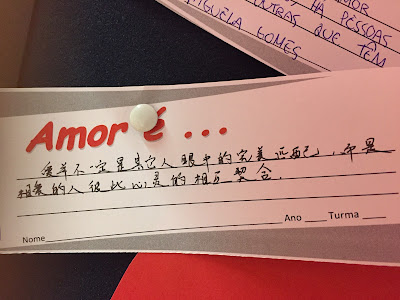 HÁ PESSOAS
QUE TÊM
GOMES
Amor é ...
爱并不一定是其它人眼中的完美匹配,而是
相爱的人彼此心灵的相互契合.
Ano ____ Turma ____
Nome